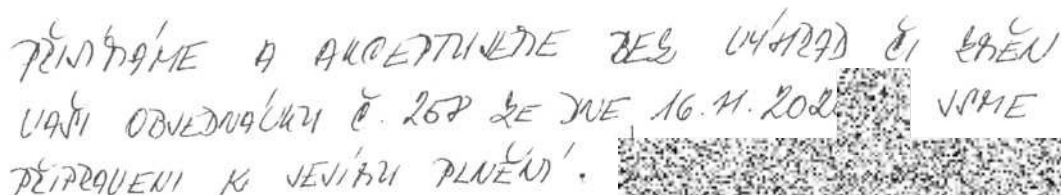 PŘIJÍMÁME A AKCEPTUJEME BEZ VÝHRAD ČI ZMĚN
VAŠI OBJEDNÁVKU Č. 258 ZE DNE 16.11.202 JSME
PŘIPRAVENI K JEJÍMU PLNĚNÍ.